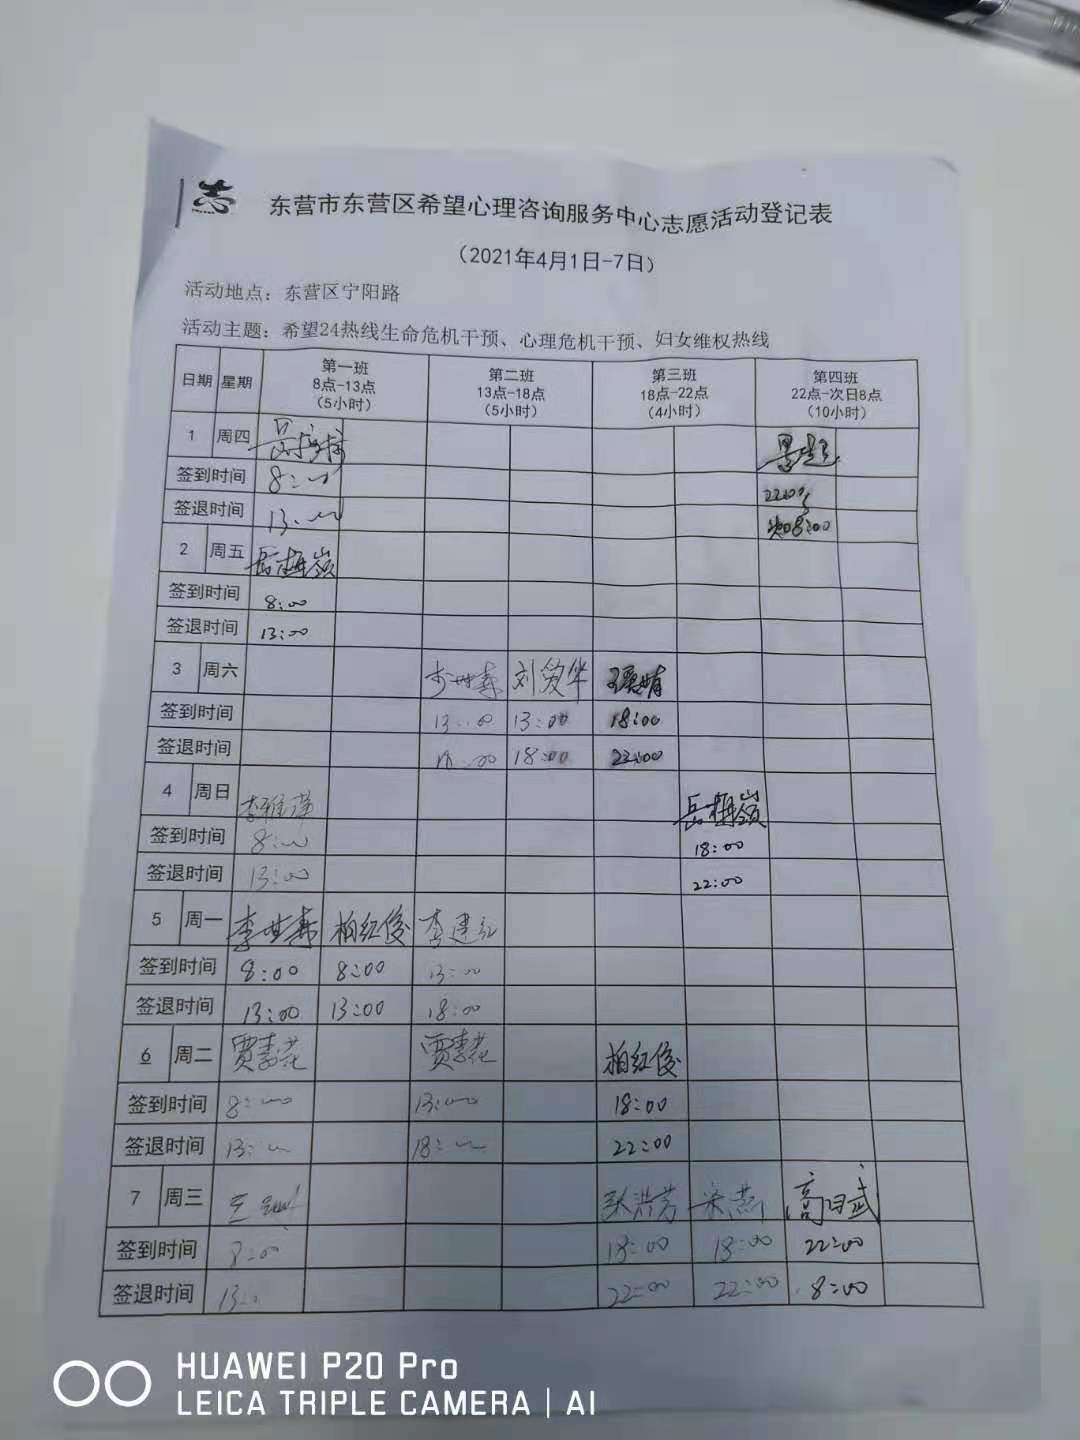 志
东营市东营区希望心理咨询服务中心志愿活动登记表
（2021年4月1日-7日）
活动地点：东营区宁阳路
活动主题：希望24热线生命危机干预、心理危机干预、妇女维权热线
日期 星期 第一班 第二班 第三班 第四班
8点-13点 13点-18点 18点-22点 22点-次日8点
（5小时） （5小时） （4小时） （10小时）
1 周四
签到时间 8:00
签退时间 13:00
2 周五 岳梅嶺
签到时间 8:00
签退时间 13:00
3 周六
签到时间 13:00 13:00 18:00
签退时间 18:00 18:00 22:00
4 周日 岳梅嶺
签到时间 8:00 18:00
签退时间 13:00 22:00
5 周一 柏红俊 李建红
签到时间 8:00 8:00 13:00
签退时间 13:00 13:00 18:00
6 周二 贾素花 贾素花 柏红俊
签到时间 8:00 13:00 18:00
签退时间 13:00 18:00 22:00
7 周三
签到时间 8:00 18:00 18:00 22:00
签退时间 22:00 22:00 8:00
HUAWEI P20 Pro
LEICA TRIPLE CAMERA | AI